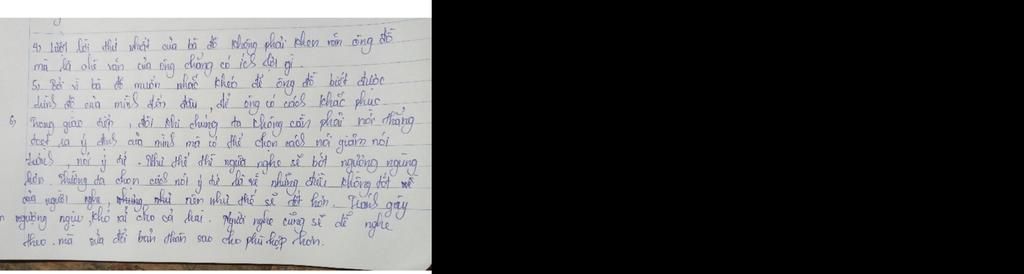 4) Lượt lời thứ nhất của bà đồ không phải khen văn ông đồ
mà là chê văn của ông chẳng có ích lợi gì.
5) Bởi vì bà đồ muốn nhắc khéo để ông đồ biết được
trình độ của mình đến đâu, để ông có cách khắc phục.
6) Trong giao tiếp, đôi khi chúng ta không cần phải nói thẳng
toẹt ra ý định của mình mà có thể chọn cách nói giảm nói
tránh, nói ý tứ. Như thế thì người nghe sẽ bớt ngượng ngùng
hơn. Thường ta chọn cách nói ý tứ là về những điều không tốt
của người nghe, nên như thế sẽ tốt hơn. Tránh gây
ngượng ngịu, khó xử cho cả hai. Người nghe cũng sẽ dễ nghe
theo. mà sửa đổi bản thân sao cho phù hợp hơn.